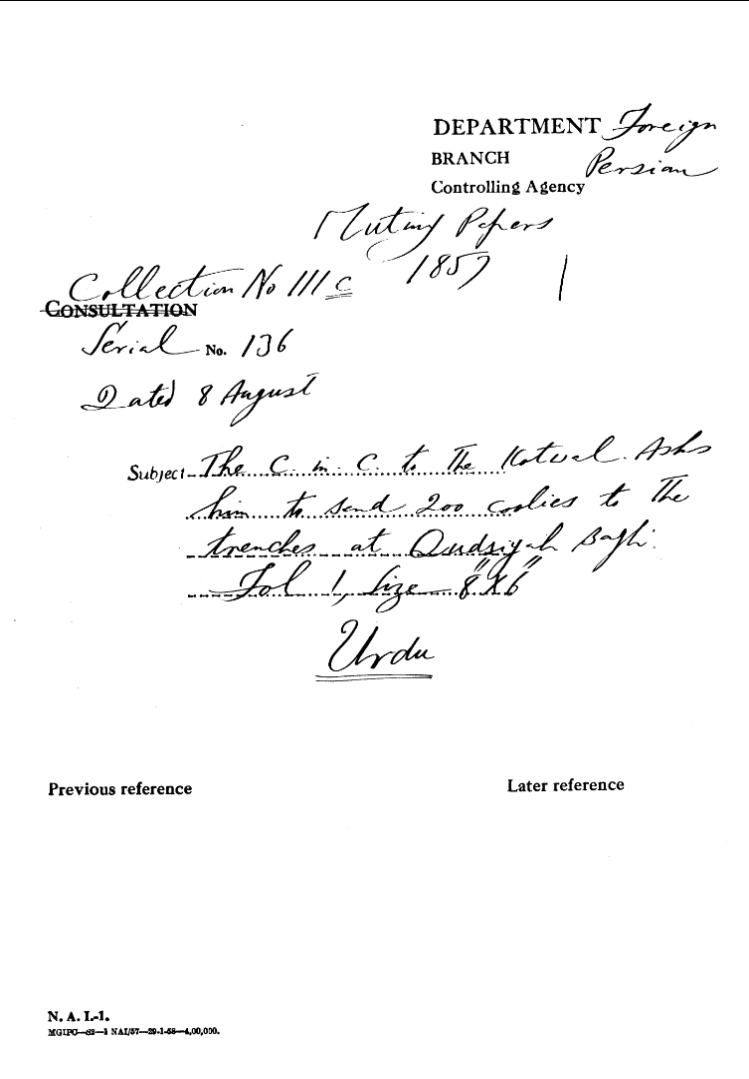 DEPARTMENT Foreign
BRANCH Persian
Controlling Agency
Mutiny Papers
1857
Collection No III C
CONSULTATION
Serial No. 136
Dated 8 August
Subject The C. in. C. to the Kotwal. Asks
him to send 200 coolies to the
trenches at Qudsiyah Bagh.
Fol 1, Size 8"X6"
Urdu
Previous reference
Later reference
N. A. I.-1.
MGIPC—S2—1 NAI/57—29-1-58—4,00,000.